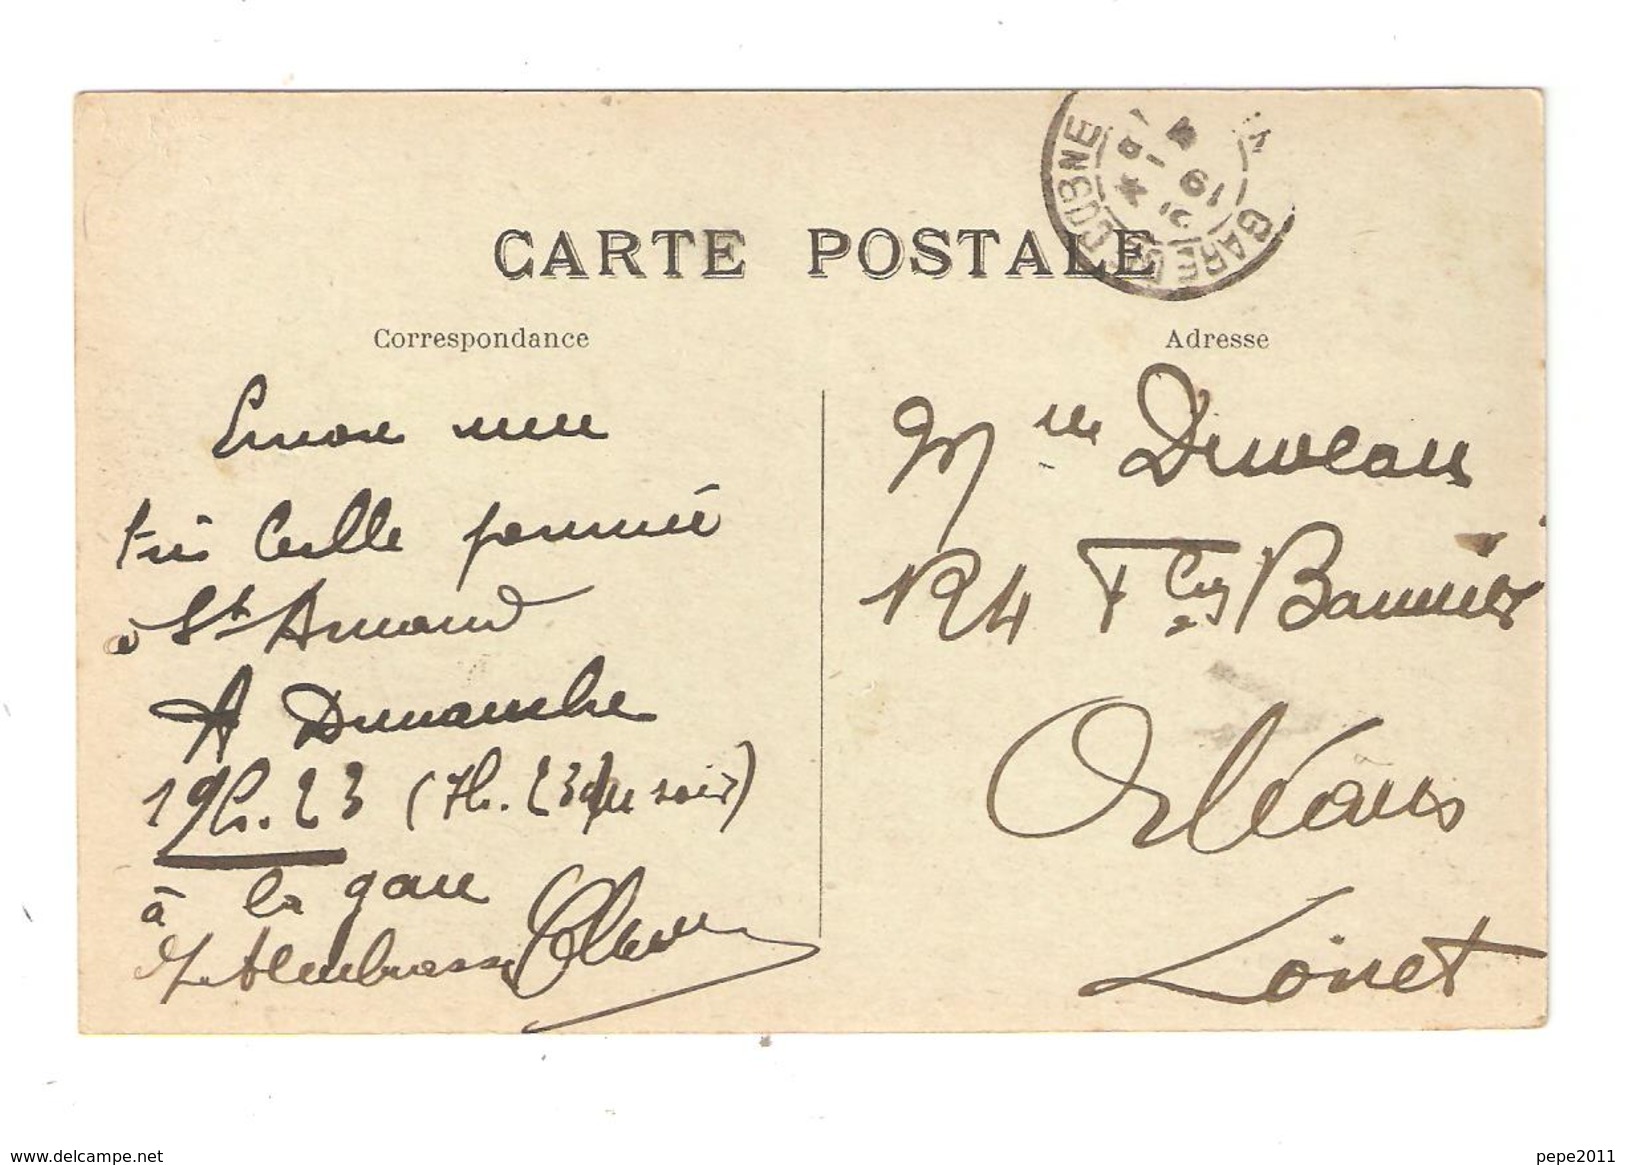 CARTE POSTALE
GARE DE COSNE
Correspondance
Encore une
très belle journée
à St Amand
A Dimanche
19h.23 (7h.23 du soir)
à la gare
Je t'embrasse
Adresse
Mlle
124 Fbg Bannier
Orléans
Loiret
www.delcampe.net
pepe2011